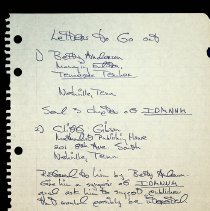 Letters to Go out
1) Betty Anderson
Managing Editor,
Tennessee Teacher
Nashville, Tenn
Send 3 chapters of IDANNA
2) Cliff
Methodist Publishing House
201 8th Ave. South
Nashville, Tenn
Referred to him by Betty Anderson.
Give him a synopsis of IDANNA
and ask him to suggest publishers
that would possibly be interested